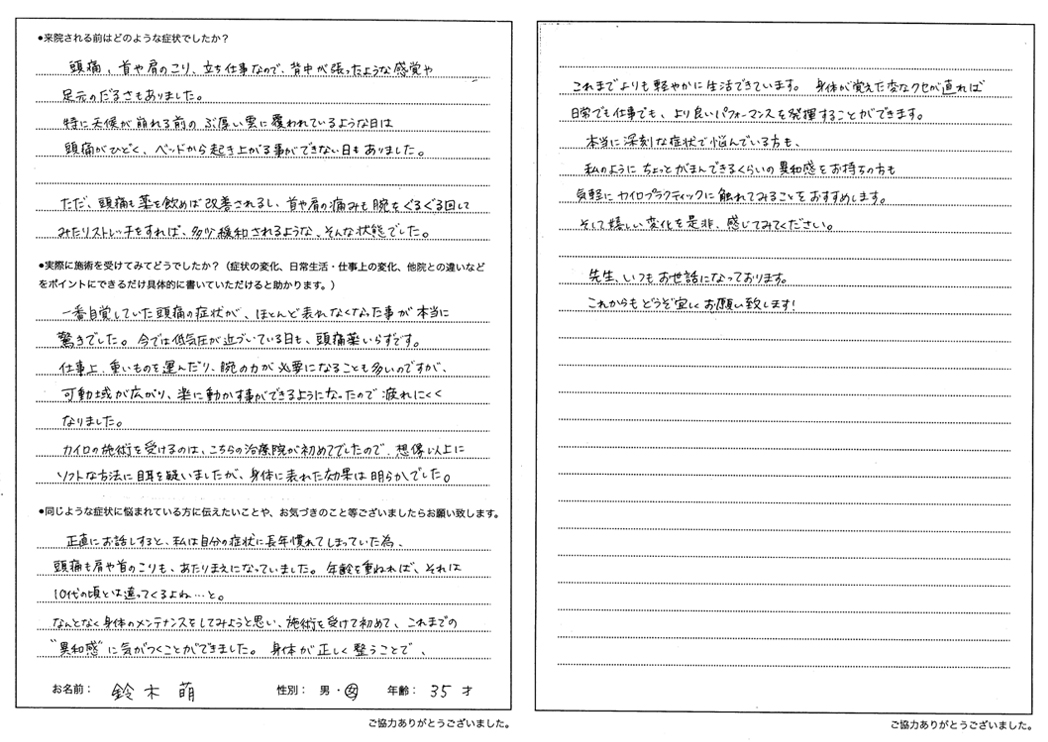 ●来院される前はどのような症状でしたか？
頭痛、首や肩のこり、立ち仕事なので、背中が張ったような感覚や
足元のだるさもありました。
特に天候が崩れる前のぶ厚い雲に覆われているような日は
頭痛がひどく、ベッドから起き上がる事ができない日もありました。
ただ、頭痛も薬を飲めば改善されるし、首や肩の痛みも腕をぐるぐる回して
みたりストレッチをすれば、多少緩和されるような、そんな状態でした。
●実際に施術を受けてみてどうでしたか？（症状の変化、日常生活・仕事上の変化、他院との違いなど
をポイントにできるだけ具体的に書いていただけると助かります。）
一番自覚していた頭痛の症状が、ほとんど表れなくなった事が本当に
驚きでした。今では低気圧が近づいている日も、頭痛薬いらずです。
仕事上、重いものを運んだり、腕の力が必要になることも多いのですが、
可動域が広がり、楽に動かす事ができるようになったので疲れにくく
なりました。
カイロの施術を受けるのは、こちらの治療院が初めてでしたので、想像以上に
ソフトな方法に目耳を疑いましたが、身体に表れた効果は明らかでした。
●同じような症状に悩まれている方に伝えたいことや、お気づきのこと等ございましたらお願い致します。
正直にお話しすると、私は自分の症状に長年慣れてしまっていた為、
頭痛も肩や首のこりも、あたりまえになっていました。年齢を重ねれば、それは
10代の頃とは違ってくるよね…と。
なんとなく身体のメンテナンスをしてみようと思い、施術を受けて初めて、これまでの
"異和感"に気がつくことができました。身体が正しく整うことで、
お名前： 鈴木 萌 性別： 男・女 年齢： 35 才
ご協力ありがとうございました。
これまでよりも軽やかに生活できています。身体が覚えた変なクセが直れば
日常でも仕事でも、より良いパフォーマンスを発揮することができます。
本当に深刻な症状で悩んでいる方も、
私のようにちょっとがまんできるくらいの異和感をお持ちの方も
気軽にカイロプラクティックに触れてみることをおすすめします。
そして嬉しい変化を是非、感じてみてください。
先生、いつもお世話になっております。
これからもどうぞ宜しくお願い致します！
ご協力ありがとうございました。